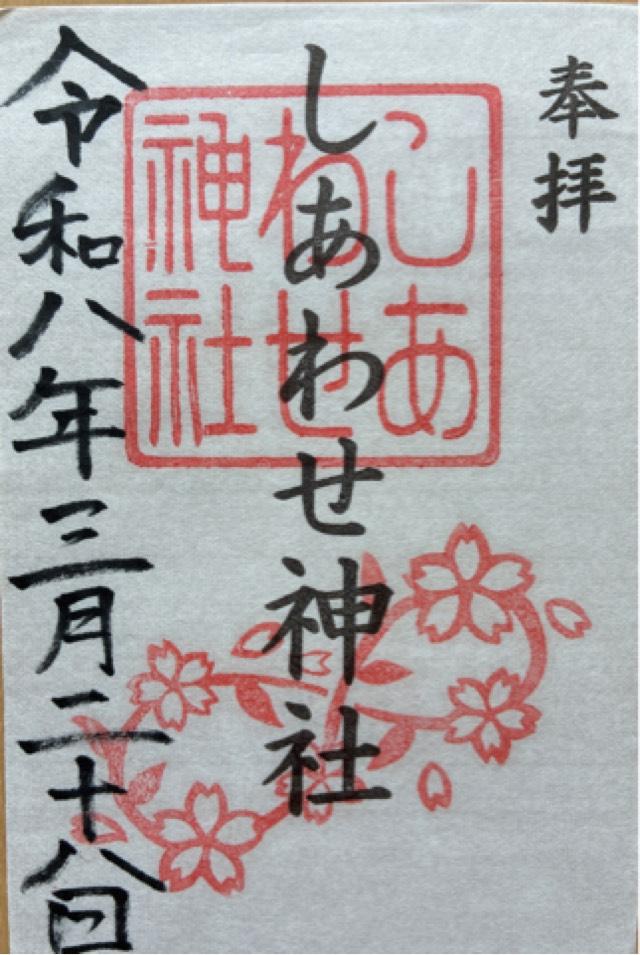 奉拝
しあわせ神社
しあ
わせ
神社
令和八年三月二十八日